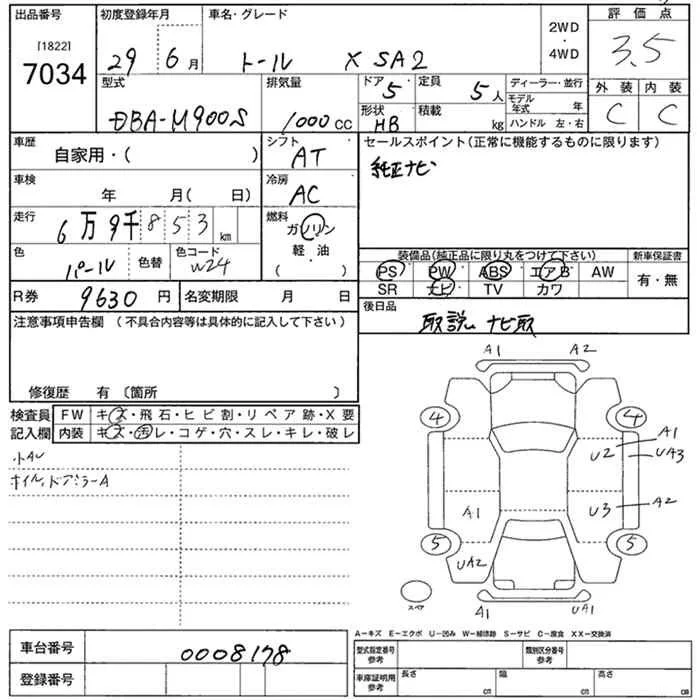 出品番号
[1822]
7034
初度登録年月
29 6月
車名・グレード
トール X SA2
2WD
・
4WD
評価点
3.5
外装 内装
C C
型式
DBA-M900S
排気量
1000 CC
ドア
5
定員
5人
ディーラー・並行
形状
HB
積載
kg
モデル年式 年
ハンドル 左・右
車歴
自家用・( )
シフト
AT
セールスポイント(正常に機能するものに限ります)
純正ナビ
車検
年 月( 日)
冷房
AC
走行
6万9千853km
燃料
ガソリン
軽・油
・
( )
色
パール
色替
色コード
W24
装備品(純正品に限り丸をつけて下さい)
新車保証書
PS PW ABS エアB AW
SR ナビ TV カワ
有・無
R券 9630円
名変期限 月 日
後日品
取説 ナビ取
注意事項申告欄 (不具合内容等は具体的に記入して下さい)
修復歴 有〔箇所 〕
検査員
記入欄
FW キズ・飛石・ヒビ割・リペア跡・X要
内装 キズ・汚レ・コゲ・穴・スレ・キレ・破レ
小AU
ホイル、ドアミラーA
A1 A2
4 4
A1
U2 UA3
A1 U3 A2
5 5
UA2
スペア
A1 UA1
車台番号 0008178
登録番号
A-キズ E-エクボ U-凹み W-補修跡 S-サビ C-腐食 XX-交換済
型式指定番号
参考
類別区分番号
参考
車庫証明用
参考
長さ cm
幅 cm
高さ cm